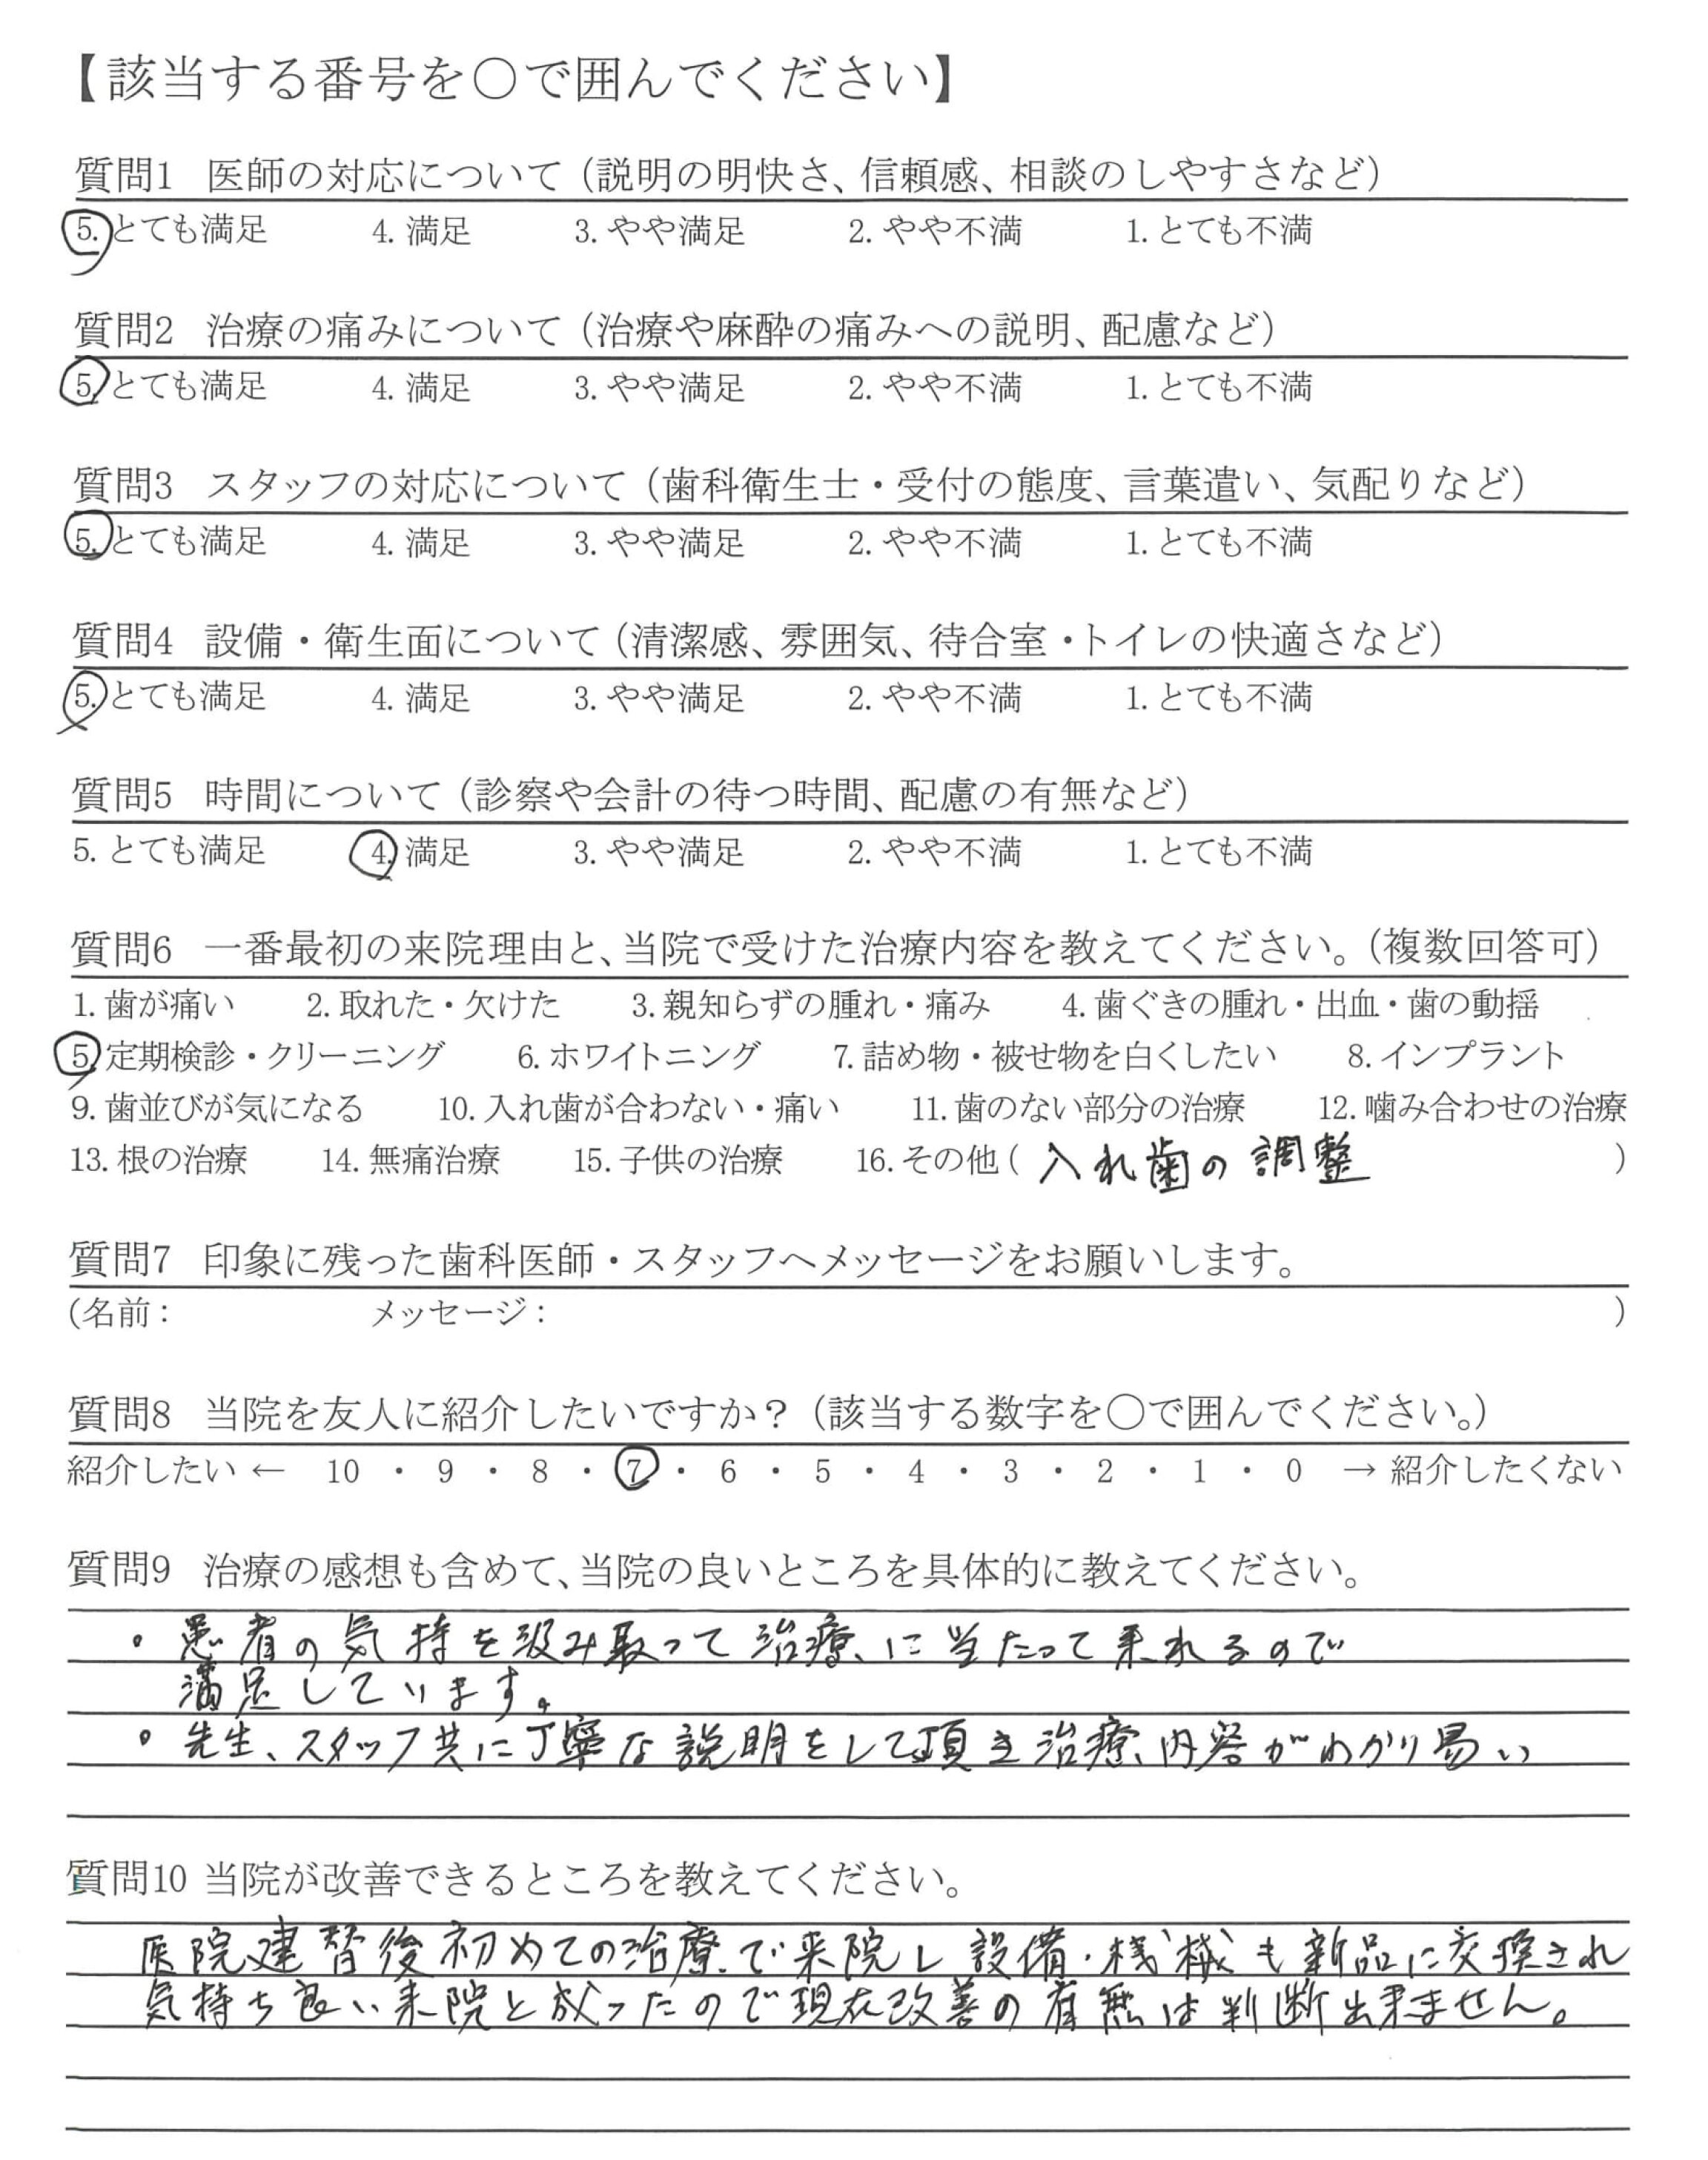 【該当する番号を○で囲んでください】
質問1 医師の対応について（説明の明快さ、信頼感、相談のしやすさなど）
5. とても満足 4. 満足 3. やや満足 2. やや不満 1. とても不満
質問2 治療の痛みについて（治療や麻酔の痛みへの説明、配慮など）
5. とても満足 4. 満足 3. やや満足 2. やや不満 1. とても不満
質問3 スタッフの対応について（歯科衛生士・受付の態度、言葉遣い、気配りなど）
5. とても満足 4. 満足 3. やや満足 2. やや不満 1. とても不満
質問4 設備・衛生面について（清潔感、雰囲気、待合室・トイレの快適さなど）
5. とても満足 4. 満足 3. やや満足 2. やや不満 1. とても不満
質問5 時間について（診察や会計の待つ時間、配慮の有無など）
5. とても満足 4. 満足 3. やや満足 2. やや不満 1. とても不満
質問6 一番最初の来院理由と、当院で受けた治療内容を教えてください。（複数回答可）
1. 歯が痛い 2. 取れた・欠けた 3. 親知らずの腫れ・痛み 4. 歯ぐきの腫れ・出血・歯の動揺
5. 定期検診・クリーニング 6. ホワイトニング 7. 詰め物・被せ物を白くしたい 8. インプラント
9. 歯並びが気になる 10. 入れ歯が合わない・痛い 11. 歯のない部分の治療 12. 噛み合わせの治療
13. 根の治療 14. 無痛治療 15. 子供の治療 16. その他（入れ歯の調整）
質問7 印象に残った歯科医師・スタッフへメッセージをお願いします。
（名前： メッセージ： ）
質問8 当院を友人に紹介したいですか？（該当する数字を○で囲んでください。）
紹介したい ← 10 ・ 9 ・ 8 ・ 7 ・ 6 ・ 5 ・ 4 ・ 3 ・ 2 ・ 1 ・ 0 → 紹介したくない
質問9 治療の感想も含めて、当院の良いところを具体的に教えてください。
・患者の気持を汲み取って治療に当たって来れるので
満足しています。
・先生、スタッフ共に丁寧な説明をして頂き治療内容がわかり易い
質問10 当院が改善できるところを教えてください。
医院建替後初めての治療で来院し設備・機械も新品に交換され
気持ち良い来院と成ったので現在改善の有無は判断出来ません。